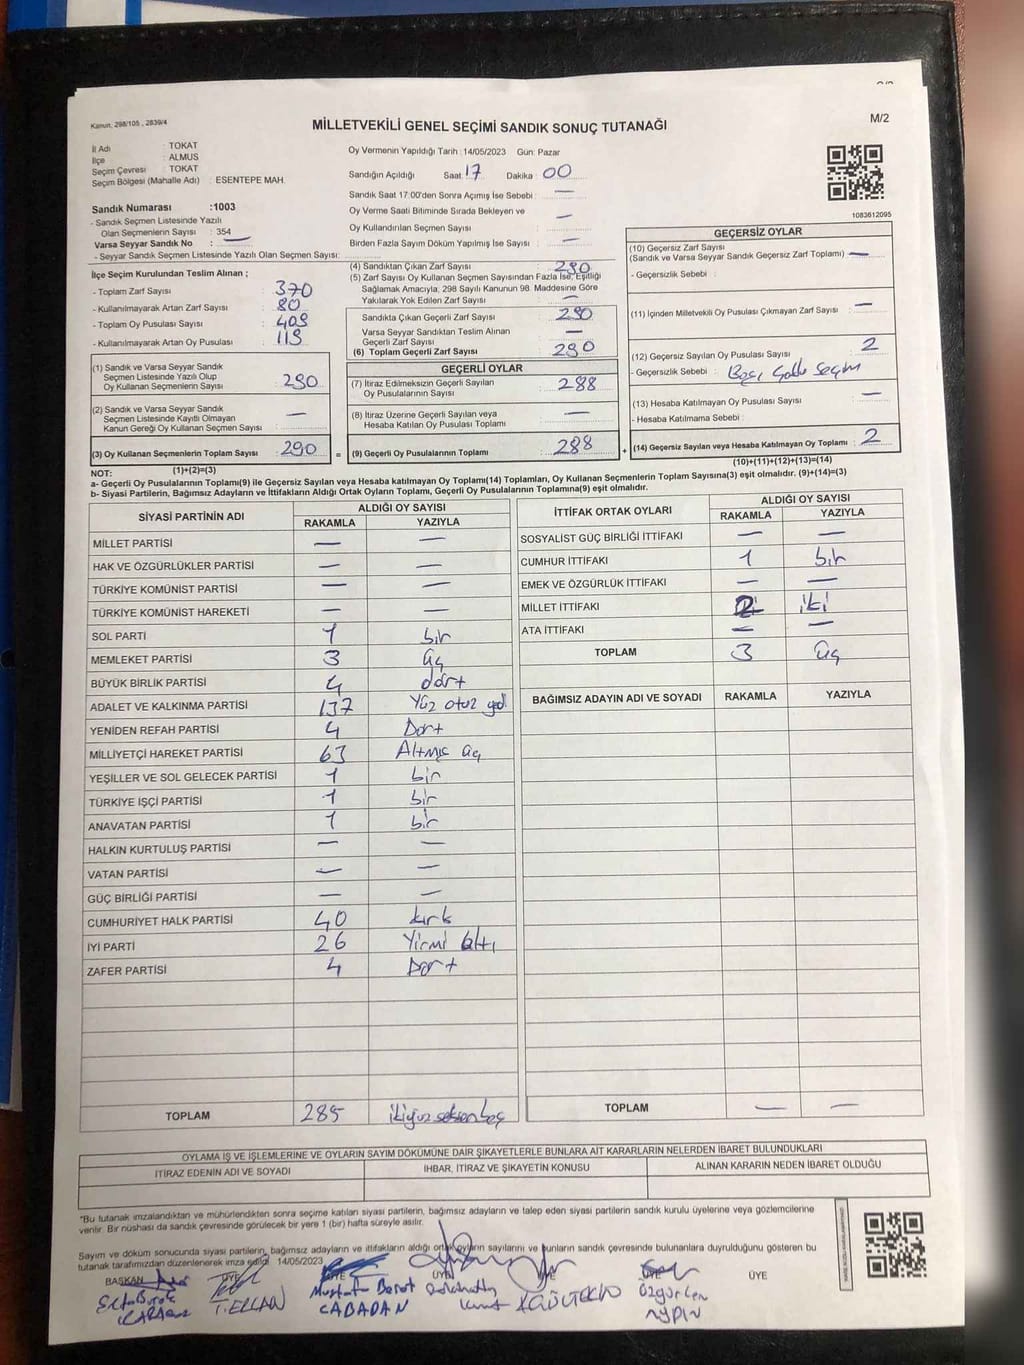 Kanun, 298/105 , 2839/4
MİLLETVEKİLİ GENEL SEÇİMİ SANDIK SONUÇ TUTANAĞI
M/2
İl Adı : TOKAT
İlçe : ALMUS
Seçim Çevresi : TOKAT
Seçim Bölgesi (Mahalle Adı) : ESENTEPE MAH.
Sandık Numarası :1003
- Sandık Seçmen Listesinde Yazılı
Olan Seçmenlerin Sayısı : 354
Varsa Seyyar Sandık No : —
- Seyyar Sandık Seçmen Listesinde Yazılı Olan Seçmen Sayısı:
Oy Vermenin Yapıldığı Tarih : 14/05/2023 Gün: Pazar
Sandığın Açıldığı Saat: 17 Dakika 00
Sandık Saat 17:00'den Sonra Açımış İse Sebebi : —
Oy Verme Saati Bitiminde Sırada Bekleyen ve
Oy Kullandırılan Seçmen Sayısı : —
Birden Fazla Sayım Döküm Yapılmış İse Sayısı : —
1083612095
İlçe Seçim Kurulundan Teslim Alınan ;
- Toplam Zarf Sayısı : 370
- Kullanılmayarak Artan Zarf Sayısı : 80
- Toplam Oy Pusulası Sayısı : 409
- Kullanılmayarak Artan Oy Pusulası : 119
(1) Sandık ve Varsa Seyyar Sandık
Seçmen Listesinde Yazılı Olup
Oy Kullanan Seçmenlerin Sayısı : 290
(2) Sandık ve Varsa Seyyar Sandık
Seçmen Listesinde Kayıtlı Olmayan
Kanun Gereği Oy Kullanan Seçmen Sayısı : —
(3) Oy Kullanan Seçmenlerin Toplam Sayısı : 290
(4) Sandıktan Çıkan Zarf Sayısı : 290
(5) Zarf Sayısı Oy Kullanan Seçmen Sayısından Fazla İse, Eşitliği
Sağlamak Amacıyla, 298 Sayılı Kanunun 98. Maddesine Göre
Yakılarak Yok Edilen Zarf Sayısı : —
Sandıkta Çıkan Geçerli Zarf Sayısı : 290
Varsa Seyyar Sandıktan Teslim Alınan
Geçerli Zarf Sayısı : —
(6) Toplam Geçerli Zarf Sayısı : 290
GEÇERLİ OYLAR
(7) İtiraz Edilmeksizin Geçerli Sayılan
Oy Pusulalarının Sayısı : 288
(8) İtiraz Üzerine Geçerli Sayılan veya
Hesaba Katılan Oy Pusulası Toplamı : —
= (9) Geçerli Oy Pusulalarının Toplamı : 288
GEÇERSİZ OYLAR
(10) Geçersiz Zarf Sayısı
(Sandık ve Varsa Seyyar Sandık Geçersiz Zarf Toplamı) —
- Geçersizlik Sebebi :
(11) İçinden Milletvekili Oy Pusulası Çıkmayan Zarf Sayısı : —
(12) Geçersiz Sayılan Oy Pusulası Sayısı : 2
- Geçersizlik Sebebi :
(13) Hesaba Katılmayan Oy Pusulası Sayısı : —
- Hesaba Katılmama Sebebi :
+ (14) Geçersiz Sayılan veya Hesaba Katılmayan Oy Toplamı : 2
NOT: (1)+(2)=(3)
(10)+(11)+(12)+(13)=(14)
a- Geçerli Oy Pusulalarının Toplamı(9) ile Geçersiz Sayılan veya Hesaba katılmayan Oy Toplamı(14) Toplamları, Oy Kullanan Seçmenlerin Toplam Sayısına(3) eşit olmalıdır. (9)+(14)=(3)
b- Siyasi Partilerin, Bağımsız Adayların ve İttifakların Aldığı Ortak Oyların Toplamı, Geçerli Oy Pusulalarının Toplamına(9) eşit olmalıdır.
SİYASİ PARTİNİN ADI ALDIĞI OY SAYISI
RAKAMLA YAZIYLA
MİLLET PARTİSİ — —
HAK VE ÖZGÜRLÜKLER PARTİSİ — —
TÜRKİYE KOMÜNİST PARTİSİ — —
TÜRKİYE KOMÜNİST HAREKETİ — —
SOL PARTİ 1 bir
MEMLEKET PARTİSİ 3 üç
BÜYÜK BİRLİK PARTİSİ 4 dört
ADALET VE KALKINMA PARTİSİ 137 Yüz otuz yedi
YENİDEN REFAH PARTİSİ 4 Dört
MİLLİYETÇİ HAREKET PARTİSİ 63 Altmış üç
YEŞİLLER VE SOL GELECEK PARTİSİ 1 bir
TÜRKİYE İŞÇİ PARTİSİ 1 bir
ANAVATAN PARTİSİ 1 bir
HALKIN KURTULUŞ PARTİSİ — —
VATAN PARTİSİ — —
GÜÇ BİRLİĞİ PARTİSİ — —
CUMHURİYET HALK PARTİSİ 40 kırk
İYİ PARTİ 26 Yirmi altı
ZAFER PARTİSİ 4 Dört
TOPLAM 285 ikiyüz seksen beş
İTTİFAK ORTAK OYLARI ALDIĞI OY SAYISI
RAKAMLA YAZIYLA
SOSYALİST GÜÇ BİRLİĞİ İTTİFAKI — —
CUMHUR İTTİFAKI 1 bir
EMEK VE ÖZGÜRLÜK İTTİFAKI — —
MİLLET İTTİFAKI 2 iki
ATA İTTİFAKI — —
TOPLAM 3 üç
BAĞIMSIZ ADAYIN ADI VE SOYADI RAKAMLA YAZIYLA
TOPLAM — —
OYLAMA İŞ VE İŞLEMLERİNE VE OYLARIN SAYIM DÖKÜMÜNE DAİR ŞİKAYETLERLE BUNLARA AİT KARARLARIN NELERDEN İBARET BULUNDUKLARI
İTİRAZ EDENİN ADI VE SOYADI İHBAR, İTİRAZ VE ŞİKAYETİN KONUSU ALINAN KARARIN NEDEN İBARET OLDUĞU
*Bu tutanak imzalandıktan ve mühürlendikten sonra seçime katılan siyasi partilerin, bağımsız adayların ve talep eden siyasi partilerin sandık kurulu üyelerine veya gözlemcilerine
verilir. Bir nüshası da sandık çevresinde görülecek bir yere 1 (bir) hafta süreyle asılır.
Sayım ve döküm sonucunda siyasi partilerin, bağımsız adayların ve ittifakların aldığı ortak oyların sayılarını ve bunların sandık çevresinde bulunanlara duyrulduğunu gösteren bu
tutanak tarafımızdan düzenlenerek imza edildi. 14/05/2023
BAŞKAN ÜYE ÜYE ÜYE ÜYE ÜYE
T. ERCAN
Mustafa Berat
CABADAN
Özgürcen
AYDIN